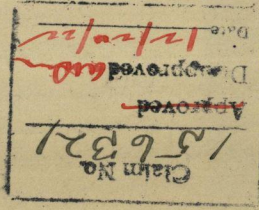 Claim No.
15632
Approved
Disapproved
Date 12/20/22